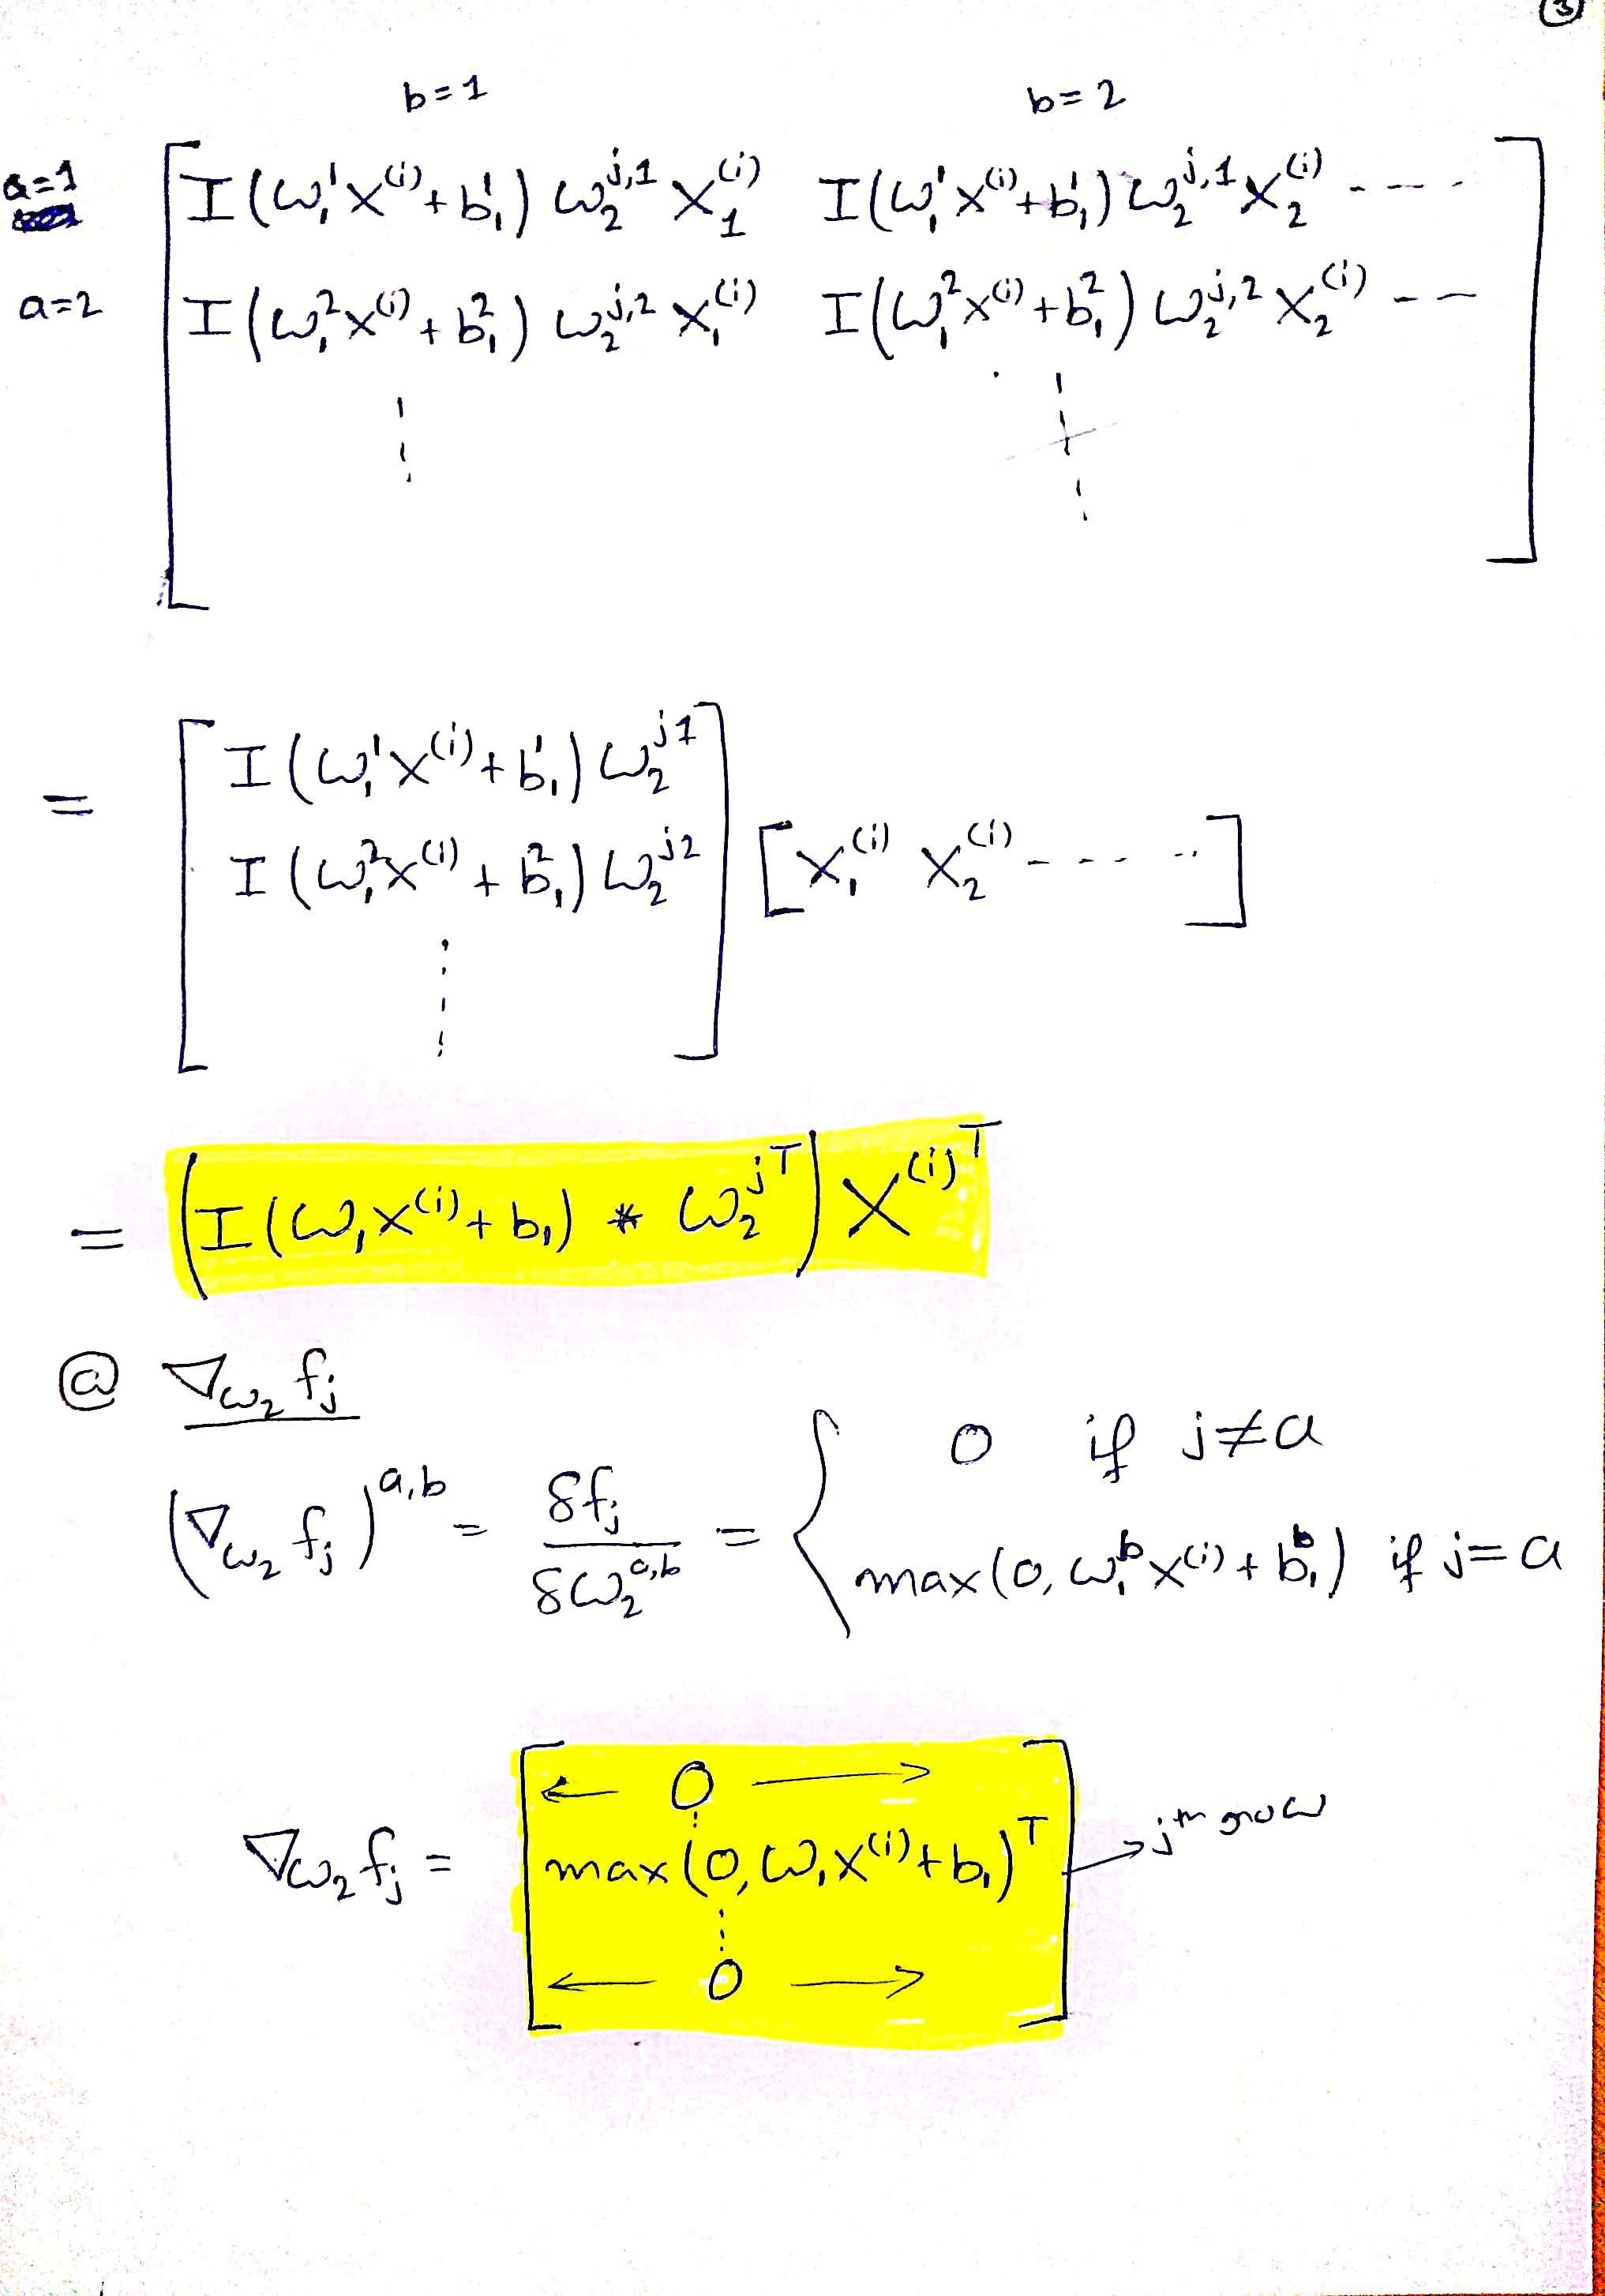 ③
b=1 b=2
a=1 I(ω₁¹x⁽ⁱ⁾+b₁¹) ω₂^{j,1} x₁⁽ⁱ⁾ I(ω₁¹x⁽ⁱ⁾+b₁¹) ω₂^{j,1} x₂⁽ⁱ⁾ ----
a=2 I(ω₁²x⁽ⁱ⁾+b₁²) ω₂^{j,2} x₁⁽ⁱ⁾ I(ω₁²x⁽ⁱ⁾+b₁²) ω₂^{j,2} x₂⁽ⁱ⁾ --
I(ω₁¹x⁽ⁱ⁾+b₁¹) ω₂^{j1}
= I(ω₁²x⁽ⁱ⁾+b₁²) ω₂^{j2} [x₁⁽ⁱ⁾ x₂⁽ⁱ⁾ ---- ]
= (I(ω₁x⁽ⁱ⁾+b₁) * ω₂^{jT}) x⁽ⁱ⁾ᵀ
@ ∇_{ω₂} f_j
(∇_{ω₂} f_j)^{a,b} = δf_j / δω₂^{a,b} = { 0 if j≠a
max(0, ω₁ᵇx⁽ⁱ⁾+b₁ᵇ) if j=a
← 0 →
∇_{ω₂} f_j = [max(0, ω₁x⁽ⁱ⁾+b₁)ᵀ] → jᵗʰ row
← 0 →